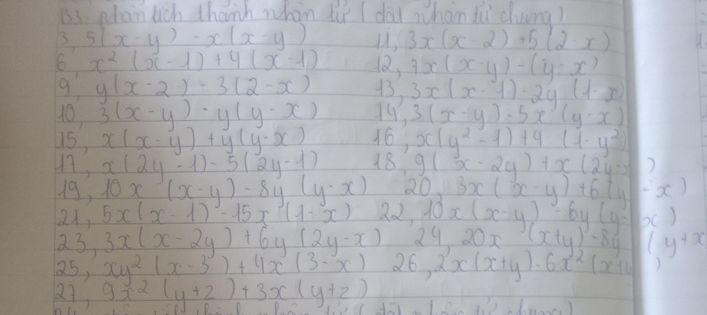 B3. phân tích thành nhân tử (đặt nhân tử chung)
3, 5(x-y) - x(x-y) 11, 3x(x-2) + 5(2-x)
6, x² (x-1) + 4(x-1) 12, 7x(x-y) - (y-x)
9, y(x-2) - 3(2-x) 13, 3x(x-1) - 2y(1-x)
10, 3(x-y) - y(y-x) 14, 3(x-y) - 5x(y-x)
15, x(x-y) + y(y-x) 16, x(y²-1) + 4(1-y²)
17, x(2y-1) - 5(2y-1) 18, 9(x-2y) + x(2y-x)
19, 10x (x-y) - 8y (y-x) 20, 3x(x-y) + 6(y-x)
21, 5x(x-1) - 15x (1-x) 22, 10x(x-y) - 6y(y-x)
23, 3x(x-2y) + 6y(2y-x) 24, 20x (x+y) - 8y (y+x
25, xy² (x-3) + 4x(3-x) 26, 2x(x+y) - 6x² (x+y)
27, 9x² (y+z) + 3x(y+z)